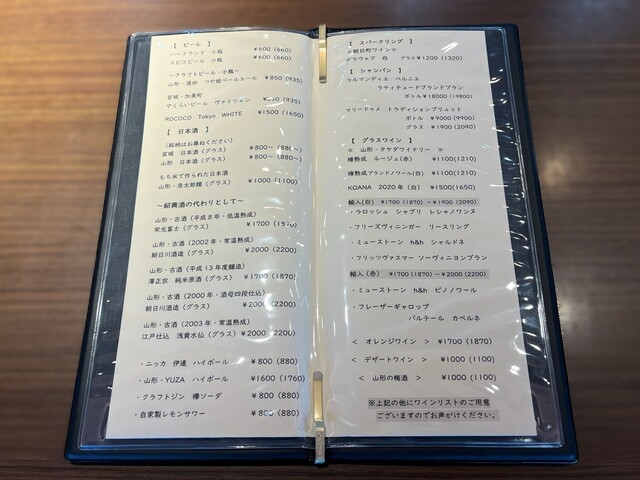 【 ビール 】
ハートランド 小瓶 ¥600(660)
エビスビール 小瓶 ¥600(660)
～クラフトビール・小瓶～
山形・酒田 つや姫ペールエール ¥850(935)
宮城・加美町
やくらいビール ヴァイツェン ¥850(935)
ROCOCO Tokyo WHITE ¥1500(1650)
【 日本酒 】
(銘柄はお尋ねください)
宮城 日本酒(グラス) ¥800～(880～)
山形 日本酒(グラス) ¥800～(880～)
もち米で作られた日本酒
山形・彦太郎糯(グラス) ¥1000(1100)
～紹興酒の代わりとして～
山形・古酒(平成8年・低温熟成)
栄光冨士(グラス) ¥1700(1870)
山形・古酒(2002年・常温熟成)
朝日川酒造(グラス) ¥2000(2200)
山形・古酒(平成13年度醸造)
澤正宗 純米原酒(グラス) ¥1700(1870)
山形・古酒(2000年・酒母四段仕込)
朝日川酒造(グラス) ¥2000(2200)
山形・古酒(2003年・常温熟成)
江戸仕込 浅黄水仙(グラス) ¥2000(2200)
・ニッカ 伊達 ハイボール ¥800(880)
・山形・YUZA ハイボール ¥1600(1760)
・クラフトジン 欅ソーダ ¥800(880)
・自家製レモンサワー ¥800(880)
【 スパークリング 】
≪朝日町ワイン≫
デラウェア 白 グラス¥1200(1320)
【 シャンパン 】
ウルマンディエ ベルニエ
ラティチュードブランドブラン
ボトル¥18000(19800)
マリードゥメ トラディションブリュット
ボトル ¥9000(9900)
グラス ¥1900(2090)
【 グラスワイン 】
≪ 山形・タケダワイナリー ≫
樽熟成 ルージュ(赤) ¥1100(1210)
樽熟成ブランドノワール(白) ¥1100(1210)
KOANA 2020年(白) ¥1500(1650)
輸入(白) ¥1700(1870)～¥1900(2090)
・ラロッシュ シャブリ レシャノワンヌ
・フリーズヴィニンガー リースリング
・ミューストーン h&h シャルドネ
・フリッツヴァスマー ソーヴィニヨンブラン
輸入(赤) ¥1700(1870)～¥2000(2200)
・ミューストーン h&h ピノノワール
・フレーザーギャロップ
パルテール カベルネ
＜ オレンジワイン ＞ ¥1700(1870)
＜ デザートワイン ＞ ¥1000(1100)
＜ 山形の梅酒 ＞ ¥1000(1100)
※上記の他にワインリストのご用意
ございますのでお声がけください。